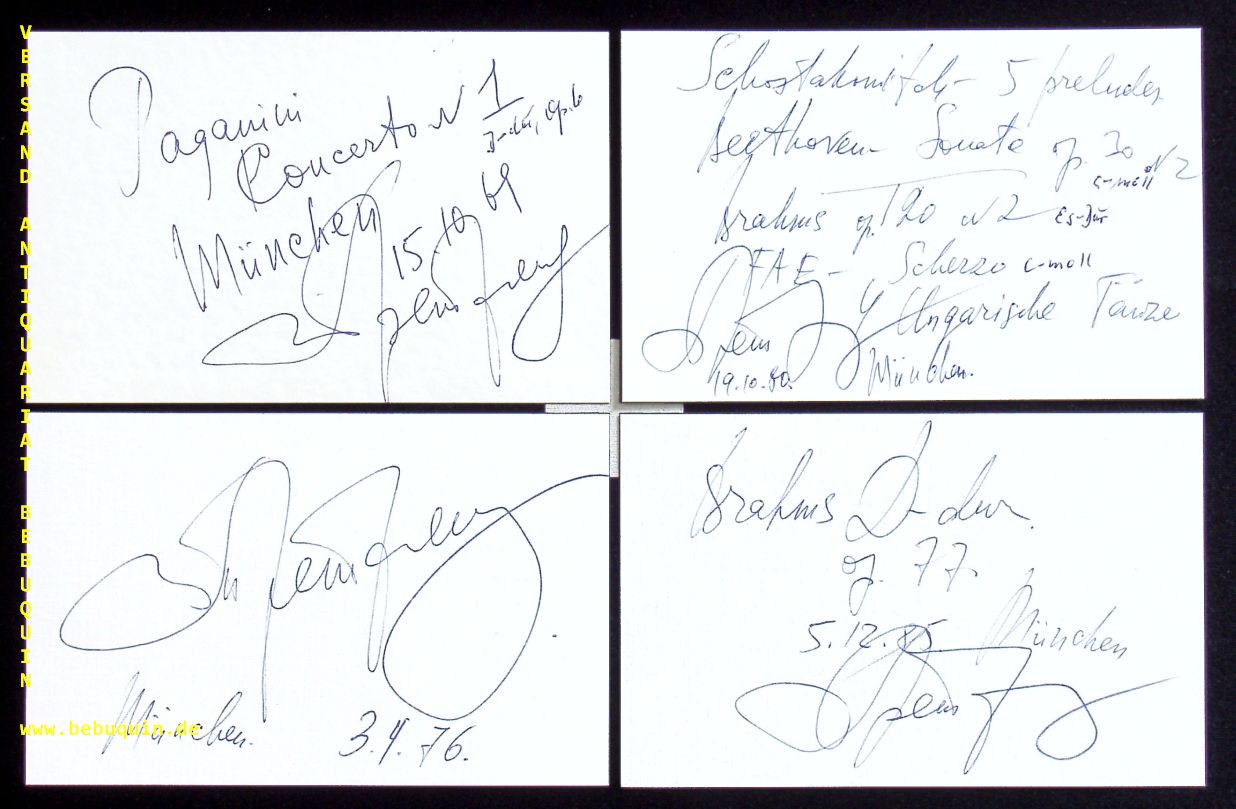 VERSAND ANTIQUARIAT BEBUQUIN
www.bebuquin.de
Paganini
Concerto N 1
D-dur, op.6
München
15.10.69
Schostakowitch - 5 preludes
Beethoven - Sonate op. 30 N 2
c-moll
Brahms op. 120 N 2 Es-Dur
FAE - Scherzo c-moll
4 Ungarische Tänze
19.10.80. München.
München. 3.4.76.
Brahms D-dur.
op. 77.
5.12.85 München